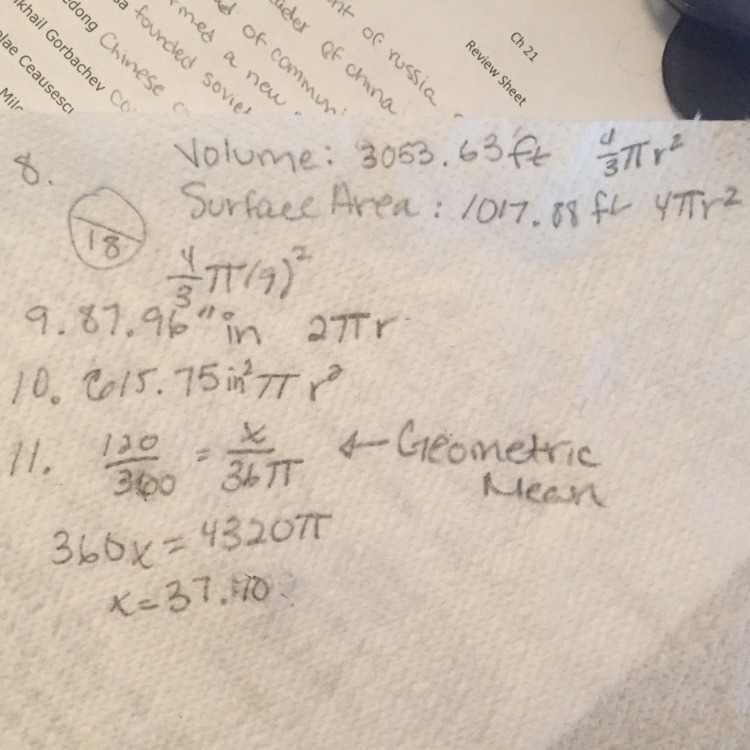 nt of russia
Ch 21
Review Sheet
ader of china
of commun
rmed a new
founded sovie
edong Chinese
khail Gorbachev co
lae Ceausescu
8. Volume: 3053.63 ft 4/3 πr²
Surface Area: 1017.88 ft 4πr²
18
4/3 π(9)²
9. 87.96" in 2πr
10. 615.75 in² πr²
11. 120/360 = x/36π ← Geometric
Mean
360x = 4320π
x = 37.70